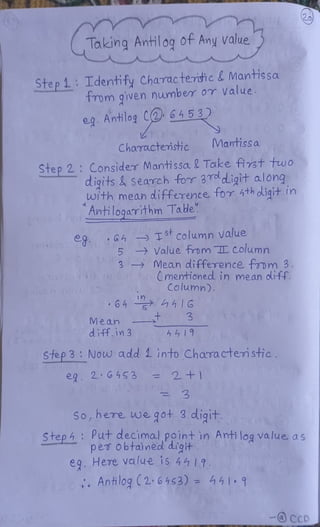 20
Taking Antilog of Any value
Step 1 : Identify Characteristic & Mantissa
from given number or value.
eg. Antilog (2.6453)
Characteristic Mantissa
Step 2 : Consider Mantissa & Take first two
digits & search for 3rd digit along
with mean difference for 4th digit in
"Antilogarithm Table"
eg. .64 → Ist column value
5 → Value from II column
3 → Mean difference from 3.
(mentioned in mean diff.
column).
.64 in 5 → 4416
Mean + 3
diff. in 3 4419
Step 3 : Now add 1 into Characteristic.
eg. 2.6453 = 2+1
= 3
So, here we got 3 digit.
Step 4 : Put decimal point in Antilog value as
per obtained digit
eg. Here value is 4419
∴ Antilog (2.6453) = 441.9
CCD